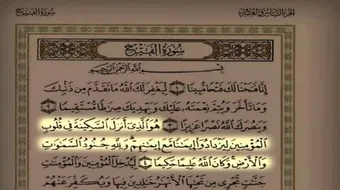 الجزء السادس والعشرون
سورة الفتح
سُورَةُ الفَتْحِ
بِسْمِ اللَّهِ الرَّحْمَٰنِ الرَّحِيمِ
إِنَّا فَتَحْنَا لَكَ فَتْحًا مُّبِينًا ١ لِّيَغْفِرَ لَكَ ٱللَّهُ مَا تَقَدَّمَ مِن ذَنۢبِكَ
وَمَا تَأَخَّرَ وَيُتِمَّ نِعْمَتَهُۥ عَلَيْكَ وَيَهْدِيَكَ صِرَٰطًا مُّسْتَقِيمًا ٢
وَيَنصُرَكَ ٱللَّهُ نَصْرًا عَزِيزًا ٣ هُوَ ٱلَّذِىٓ أَنزَلَ ٱلسَّكِينَةَ فِى قُلُوبِ
ٱلْمُؤْمِنِينَ لِيَزْدَادُوٓا۟ إِيمَٰنًا مَّعَ إِيمَٰنِهِمْ وَلِلَّهِ جُنُودُ ٱلسَّمَٰوَٰتِ
وَٱلْأَرْضِ وَكَانَ ٱللَّهُ عَلِيمًا حَكِيمًا ٤ لِّيُدْخِلَ ٱلْمُؤْمِنِينَ وَٱلْمُؤْمِنَٰتِ
جَنَّٰتٍ تَجْرِى مِن تَحْتِهَا ٱلْأَنْهَٰرُ خَٰلِدِينَ فِيهَا وَيُكَفِّرَ عَنْهُمْ